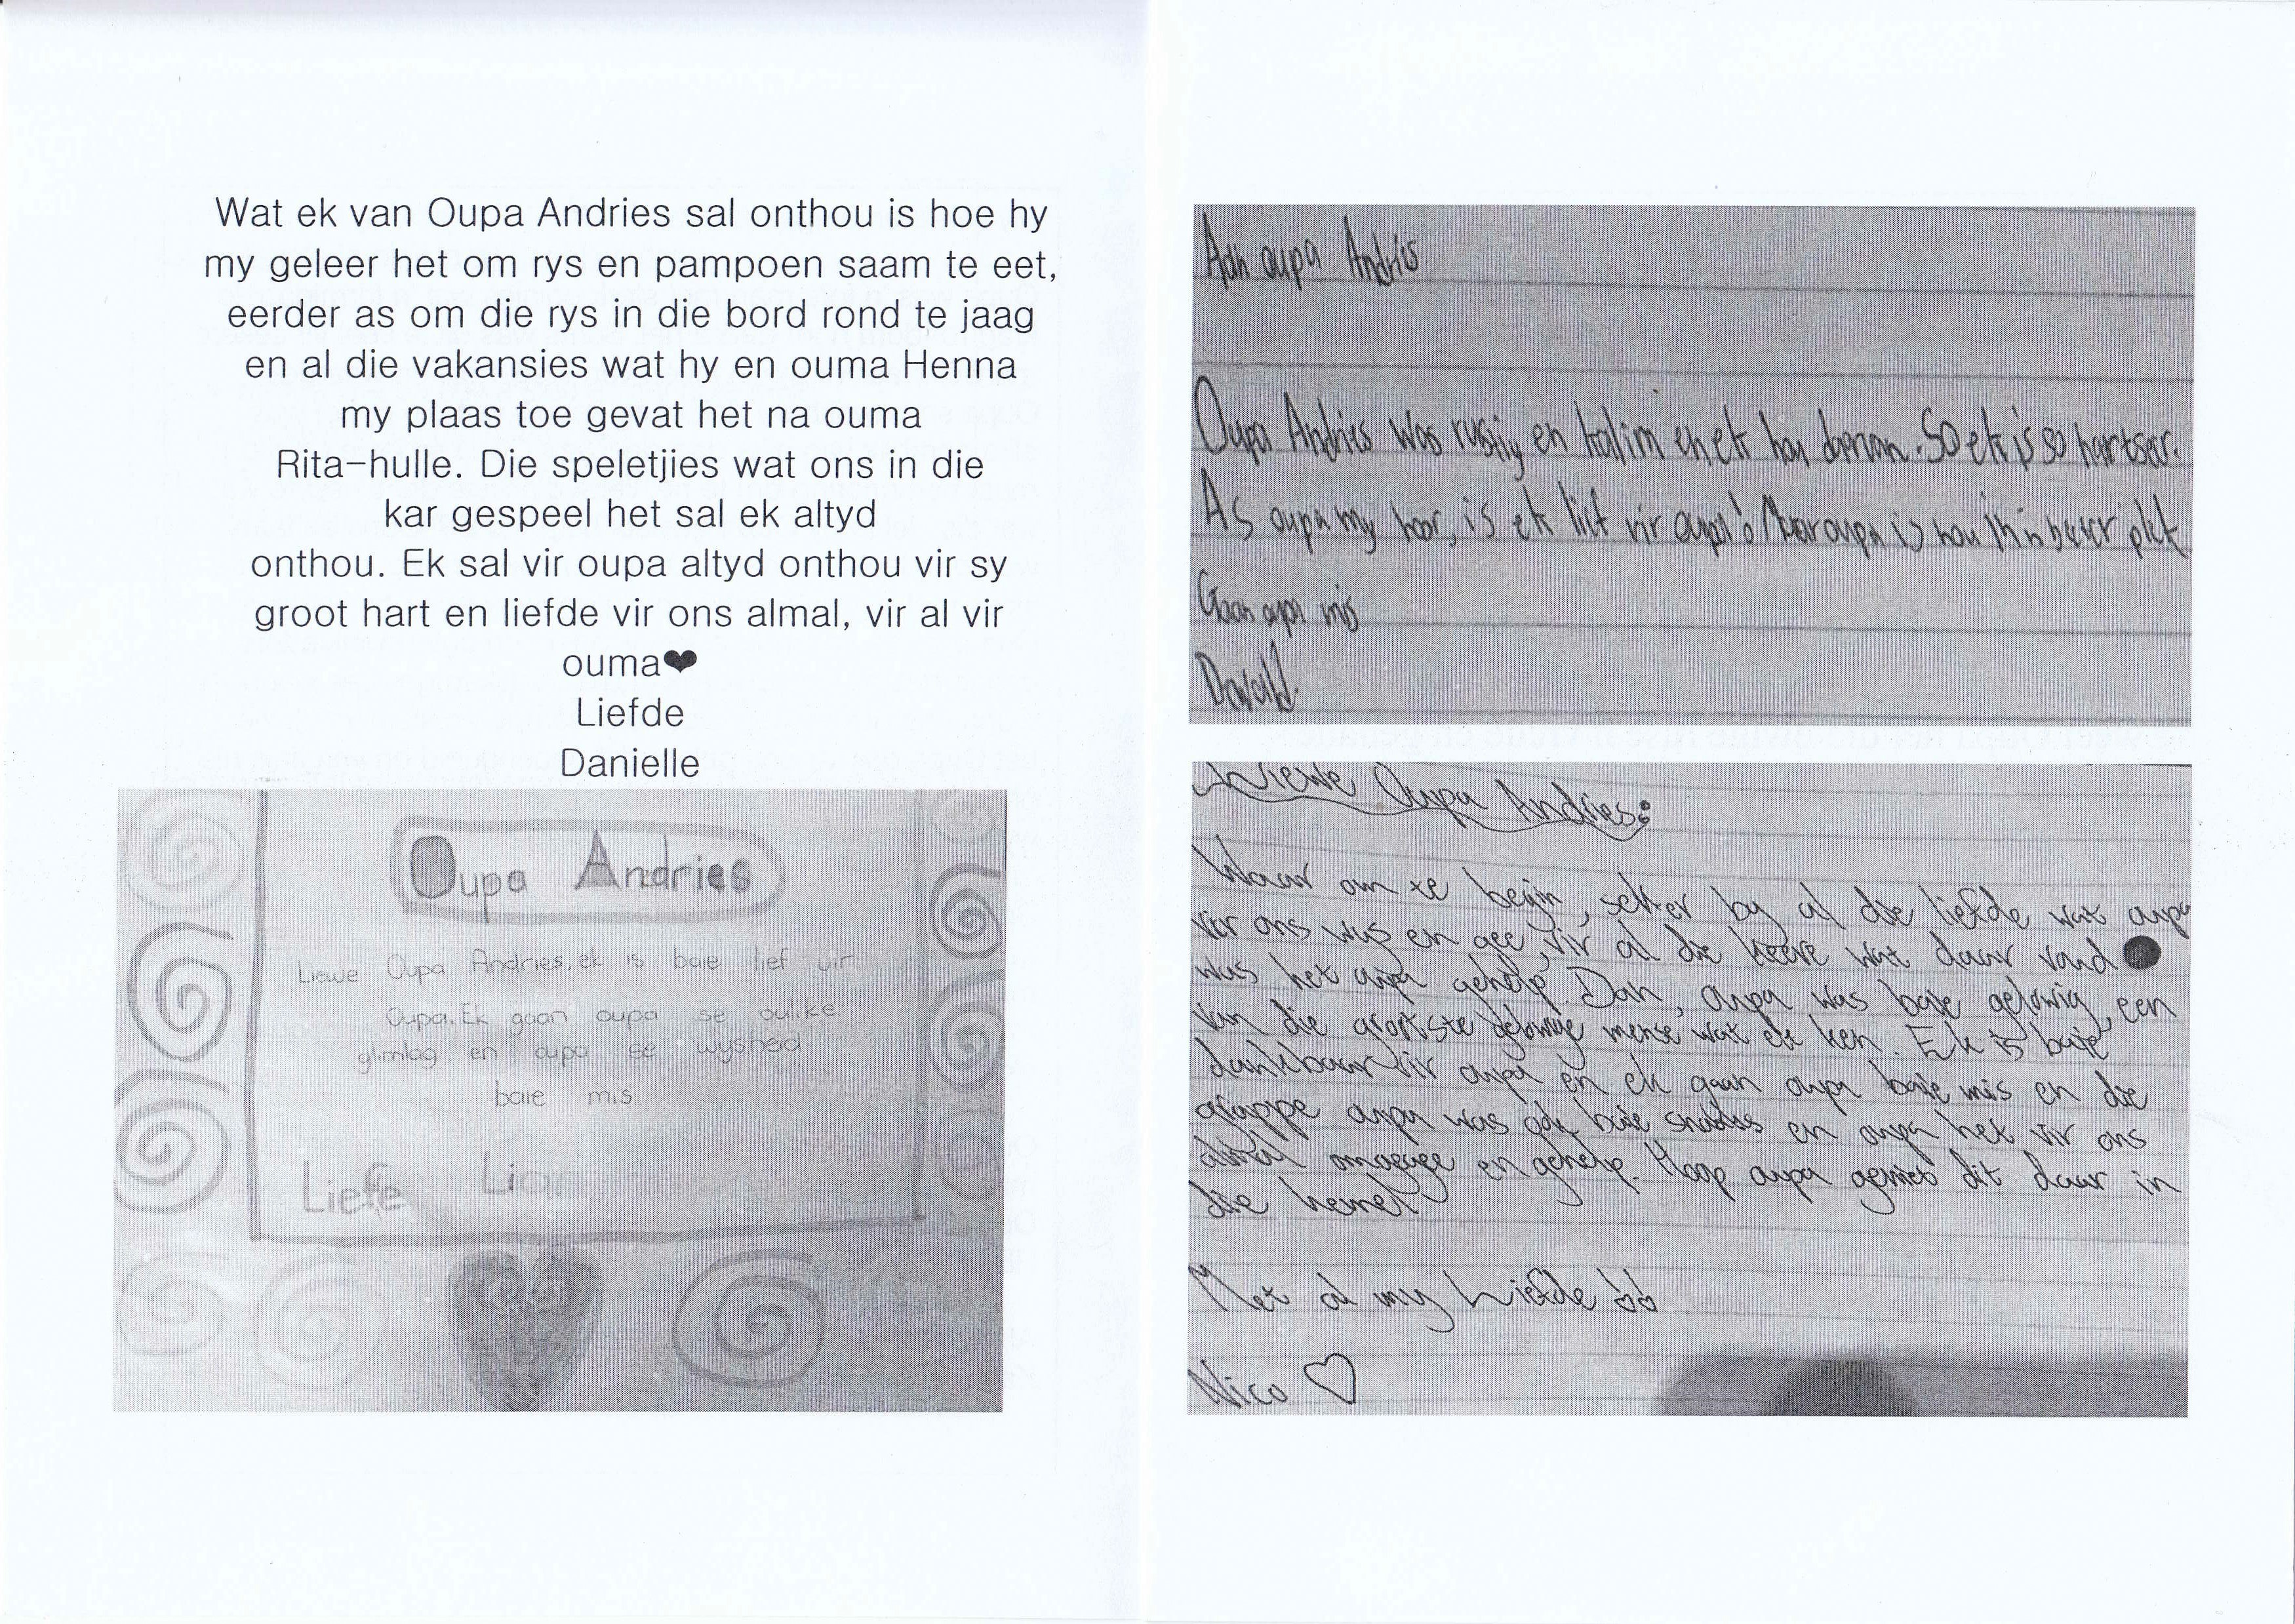 Wat ek van Oupa Andries sal onthou is hoe hy
my geleer het om rys en pampoen saam te eet,
eerder as om die rys in die bord rond te jaag
en al die vakansies wat hy en ouma Henna
my plaas toe gevat het na ouma
Rita-hulle. Die speletjies wat ons in die
kar gespeel het sal ek altyd
onthou. Ek sal vir oupa altyd onthou vir sy
groot hart en liefde vir ons almal, vir al vir
ouma❤
Liefde
Danielle
Oupa Andries
Liewe Oupa Andries, ek is baie lief vir
Oupa. Ek gaan oupa se oulike
glimlag en oupa se wysheid
baie mis
Liefe
Aan oupa Andries
Oupa Andries was rustig en en ek hou daarvan. So ek is so hartseer.
As oupa my hoor, is ek lief vir oupa! Maar oupa is nou in 'n beter plek
Gaan oupa mis
Liewe Oupa Andries:
Waar om te begin, seker by al die liefde wat oupa
vir ons wys en gee, vir al die keere wat daar raad
was het oupa gehelp. Dan, oupa was baie gelowig, een
van die grootste gelowige mense wat ek ken. Ek is baie
dankbaar vir oupa en ek gaan oupa baie mis en die
grappe oupa was ook baie en oupa het vir ons
almal omgegee en gehelp. Hoop oupa geniet dit daar in
die hemel
Met al my Liefde
Nico ♡